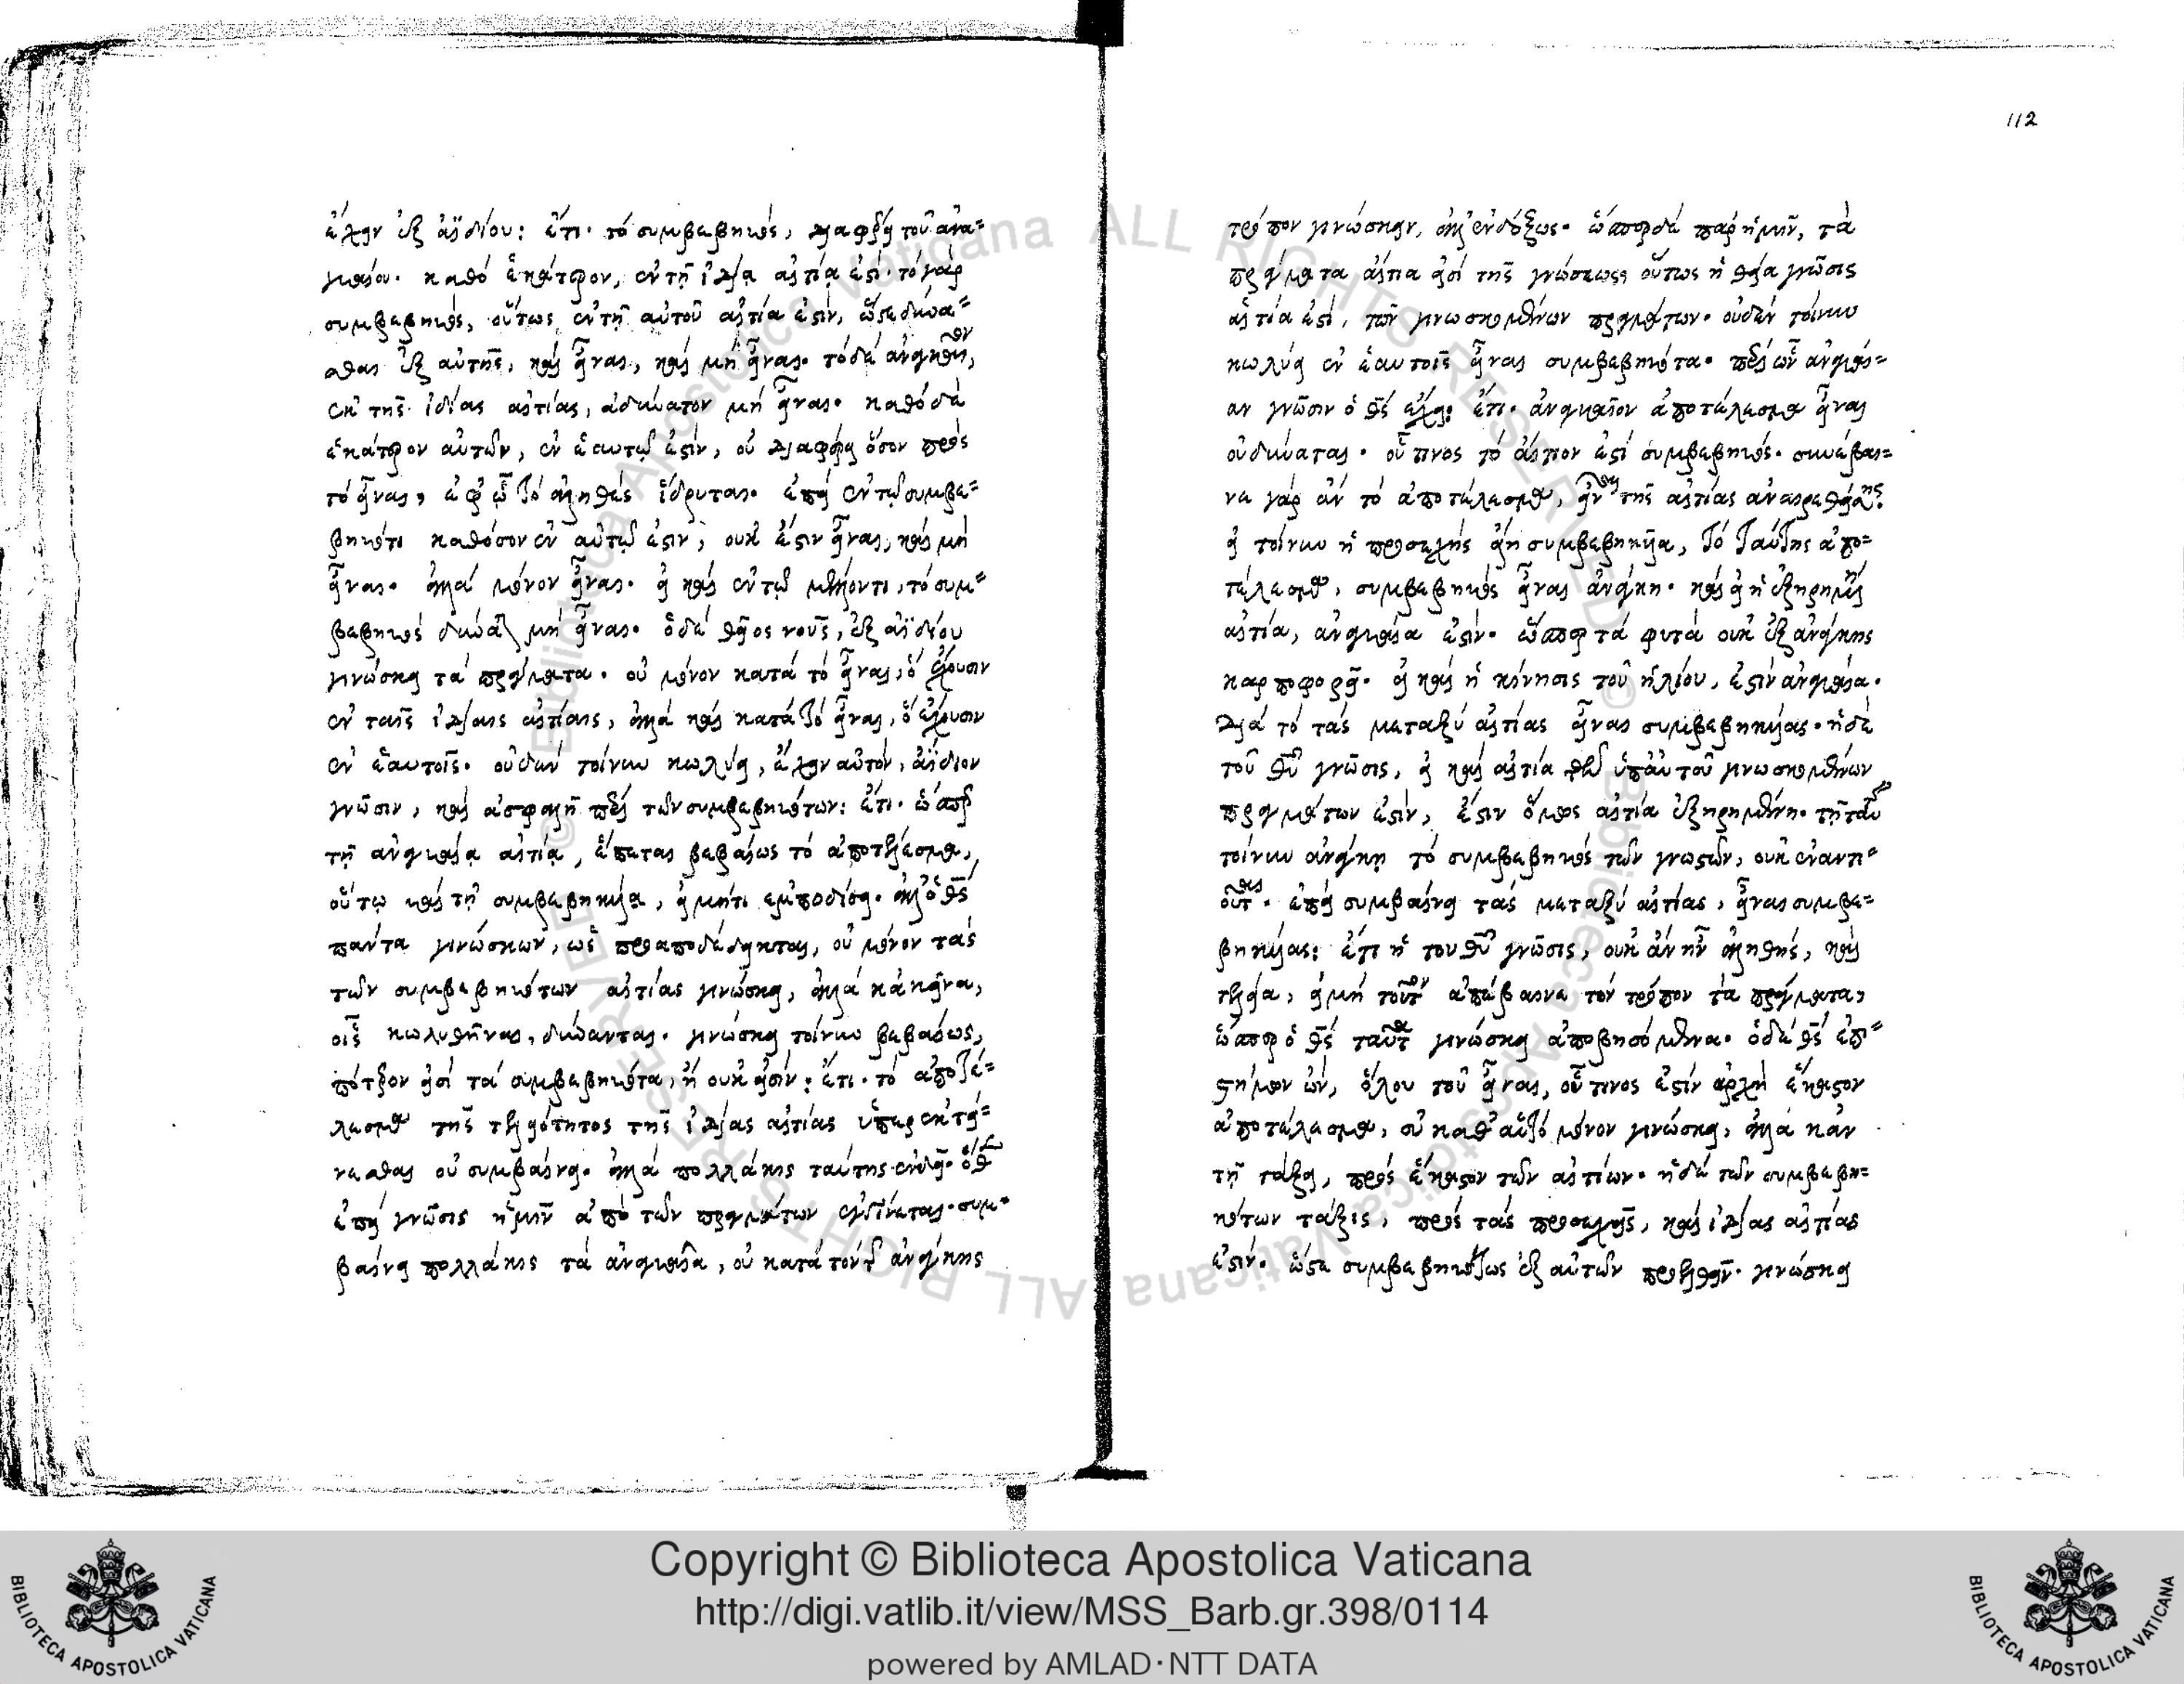 ἔχειν ἐξ ἀϊδίου: ἔτι· τὸ συμβεβηκὸς, διαφέρει τοῦ ἀνα=
γκαίου· καθὸ ἑκάτερον, ἐν τῇ ἰδίᾳ αἰτίᾳ ἐστί· τὸ γὰρ
συμβεβηκὸς, οὕτως ἐν τῇ αὐτοῦ αἰτίᾳ ἐστὶν, ὥστε δύνα=
σθαι ἐξ αὐτῆς, καὶ εἶναι, καὶ μὴ εἶναι· τὸ δὲ ἀναγκαῖον,
ἐκ τῆς ἰδίας αἰτίας, ἀδύνατον μὴ εἶναι· καθὸ δὲ
ἑκάτερον αὐτῶν, ἐν ἑαυτῷ ἐστὶν, οὐ διαφέρει ὅσον πρὸς
τὸ εἶναι, ἐφ' ᾧ τὸ ἀληθὲς ἵδρυται· ἐπεὶ ἐν τῷ συμβε=
βηκότι καθόσον ἐν αὐτῷ ἐστιν, οὐκ ἔστιν εἶναι, καὶ μὴ
εἶναι· ἀλλὰ μόνον εἶναι· εἰ καὶ ἐν τῷ μέλλοντι, τὸ συμ=
βεβηκὸς δύναται μὴ εἶναι· ὁ δὲ θεῖος νοῦς, ἐξ ἀϊδίου
γινώσκει τὰ πράγματα· οὐ μόνον κατὰ τὸ εἶναι, ὃ ἔχουσιν
ἐν ταῖς ἰδίαις αἰτίαις, ἀλλὰ καὶ κατὰ τὸ εἶναι, ὃ ἔχουσιν
ἐν ἑαυτοῖς· οὐδὲν τοίνυν κωλύει, ἔχειν αὐτὸν, ἀΐδιον
γνῶσιν, καὶ ἀσφαλῆ περὶ τῶν συμβεβηκότων: ἔτι· ὥσπερ
τῇ ἀναγκαίᾳ αἰτίᾳ, ἕπεται βεβαίως τὸ ἀποτέλεσμα,
οὕτω καὶ τῇ συμβεβηκυίᾳ, εἰ μήτι ἐμποδίσει· ἀλλ' ὁ θεὸς
πάντα γινώσκων, ὡς προαποδέδεικται, οὐ μόνον τὰς
τῶν συμβεβηκότων αἰτίας γινώσκει, ἀλλὰ κἀκεῖνα,
οἷς κωλυθῆναι, δύνανται· γινώσκει τοίνυν βεβαίως,
πότερον εἰσὶ τὰ συμβεβηκότα, ἢ οὐκ εἰσίν: ἔτι· τὸ ἀποτέ=
λεσμα τῆς τελειότητος τῆς ἰδίας αἰτίας ὑπερεκτεί=
νεσθαι οὐ συμβαίνει· ἀλλὰ πολλάκις ταύτης ἐνδεῖ· ὅθεν
ἐπεὶ γνῶσις ἡμῖν ἀπὸ τῶν πραγμάτων ἐγγίνεται· συμ=
βαίνει πολλάκις τὰ ἀναγκαῖα, οὐ κατὰ τὸν τῆς ἀνάγκης
112
τρόπον γινώσκειν, ἀλλ' ἐνδόξως· ὥσπερ δὲ παρ' ἡμῖν, τὰ
πράγματα αἴτια εἰσὶ τῆς γνώσεως, οὕτως ἡ θεία γνῶσις
αἰτία ἐστὶ, τῶν γινωσκομένων πραγμάτων· οὐδὲν τοίνυν
κωλύει ἐν ἑαυτοῖς εἶναι συμβεβηκότα· περὶ ὧν ἀναγκαί=
αν γνῶσιν ὁ θεὸς ἔχει: ἔτι· ἀναγκαῖον ἀποτέλεσμα εἶναι
οὐ δύναται· οὗ τινος τὸ αἴτιον ἐστὶ συμβεβηκός· συνέβαι=
νε γὰρ ἂν τὸ ἀποτέλεσμα, εἶναι τῆς αἰτίας ἀναιρεθείσης·
εἰ τοίνυν ἡ προσεχὴς εἴη συμβεβηκυῖα, τὸ ταύτης ἀπο=
τέλεσμα, συμβεβηκὸς εἶναι ἀνάγκη· καὶ εἰ ἡ ἐξῃρημένη
αἰτία, ἀναγκαία ἐστίν· ὥσπερ τὰ φυτὰ οὐκ ἐξ ἀνάγκης
καρποφορεῖ· εἰ καὶ ἡ κίνησις τοῦ ἡλίου, ἐστὶν ἀναγκαία·
διὰ τὸ τὰς μεταξὺ αἰτίας εἶναι συμβεβηκυίας· ἡ δὲ
τοῦ θεοῦ γνῶσις, εἰ καὶ αἰτία τῶν ὑπ' αὐτοῦ γινωσκομένων
πραγμάτων ἐστὶν, ἔστιν ὅμως αἰτία ἐξῃρημένη· τῇ ταύτης
τοίνυν ἀνάγκῃ τὸ συμβεβηκὸς τῶν γνωστῶν, οὐκ ἐναντι=
οῦται· ἐπεὶ συμβαίνει τὰς μεταξὺ αἰτίας, εἶναι συμβε=
βηκυίας: ἔτι ἡ τοῦ θεοῦ γνῶσις, οὐκ ἂν ἦν ἀληθὴς, καὶ
τελεία, εἰ μὴ τοῦτον ἀπέβαινε τὸν τρόπον τὰ πράγματα,
ὥσπερ ὁ θεὸς ταῦτα γινώσκει ἀποβησόμενα· ὁ δὲ θεὸς ἐπι=
στήμων ὢν, ὅλου τοῦ εἶναι, οὗ τινος ἐστὶν ἀρχὴ ἕκαστον
ἀποτέλεσμα, οὐ καθ' αὑτὸ μόνον γινώσκει, ἀλλὰ κἂν
τῇ τάξει, πρὸς ἕκαστον τῶν αἰτίων· ἡ δὲ τῶν συμβεβη=
κότων τάξις, πρὸς τὰς προσεχεῖς, καὶ ἰδίας αἰτίας
ἐστίν· ὥστε συμβεβηκότως ἐξ αὐτῶν προελθεῖν· γινώσκει
Copyright © Biblioteca Apostolica Vaticana
http://digi.vatlib.it/view/MSS_Barb.gr.398/0114
powered by AMLAD·NTT DATA
BIBLIOTECA APOSTOLICA VATICANA
BIBLIOTECA APOSTOLICA VATICANA
© Biblioteca Apostolica Vaticana ALL RIGHTS RESERVED
© Biblioteca Apostolica Vaticana ALL RIGHTS RESERVED